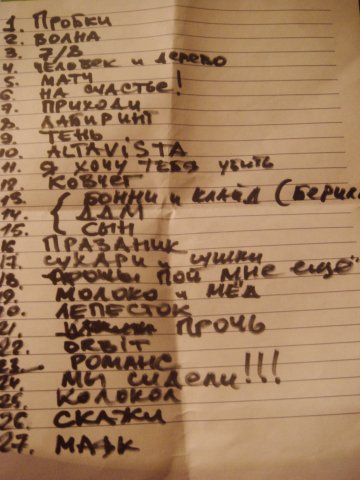 1. ПРОБКИ
2. ВОЛНА
3. 7/8
4. ЧЕЛОВЕК и ДЕРЕВО
5. МАТЧ
6. НА СЧАСТЬЕ!
7. ПРИХОДИ
8. ЛАБИРИНТ
9. ТЕНЬ
10. ALTAVISTA
11. Я ХОЧУ ТЕБЯ УБИТЬ
12. КОВЧЕГ
13. { БОННИ и КЛАЙД (БЕРИЛ
14. ДДМ
15. СЫН
16 ПРАЗДНИК
17. СУХАРИ и СУШКИ
18. ПОЙ МНЕ ЕЩЁ
19. МОЛОКО и МЁД
20. ЛЕПЕСТОК
21. ПРОЧЬ
22. ORBIT
23. РОМАНС
24 МЫ СИДЕЛИ!!!
25. КОЛОКОЛ
26. СКАЖИ
27. МАЯК